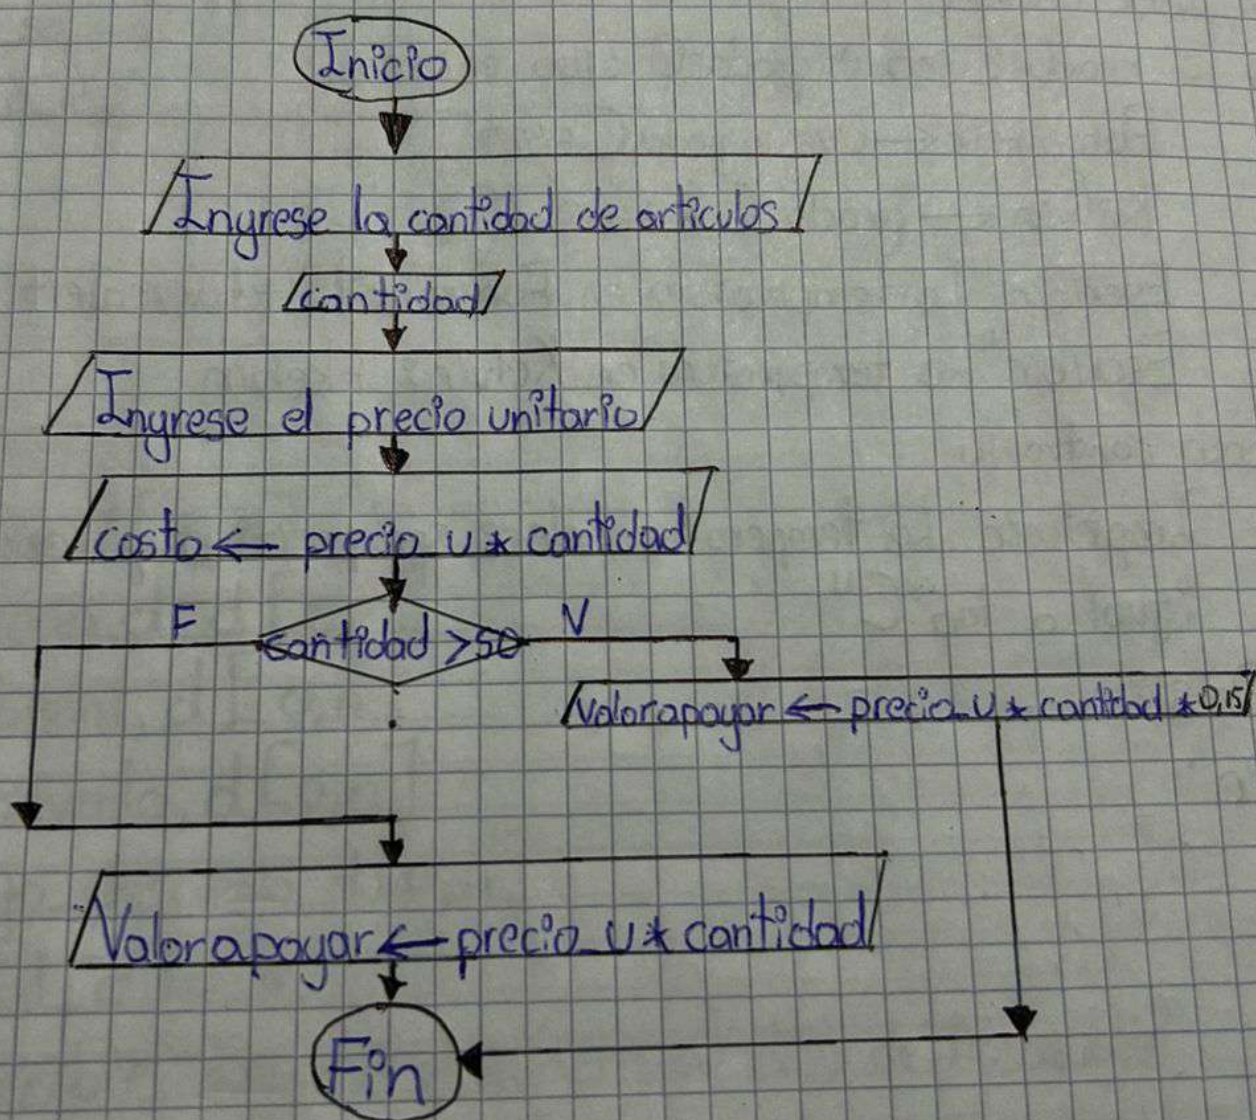 Inicio
Ingrese la cantidad de articulos
cantidad
Ingrese el precio unitario
costo ← precio_u * cantidad
F
cantidad > 50
V
Valorapagar ← precio_u * cantidad * 0,15
Valorapagar ← precio_u * cantidad
Fin